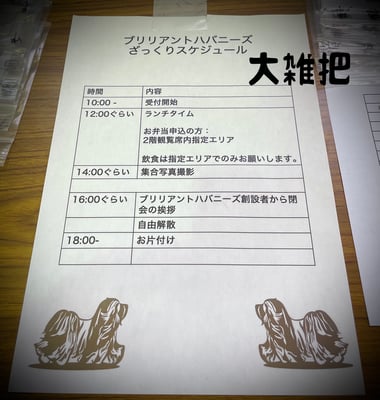 ブリリアントハバニーズ
ざっくりスケジュール
大雑把
時間 内容
10:00 - 受付開始
12:00ぐらい ランチタイム
お弁当申込の方：
2階観覧席内指定エリア
飲食は指定エリアでのみお願いします。
14:00ぐらい 集合写真撮影
16:00ぐらい ブリリアントハバニーズ創設者から閉
会の挨拶
自由解散
18:00- お片付け